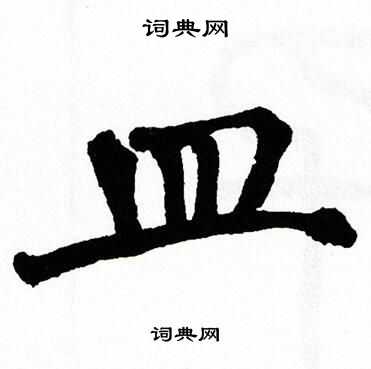 词典网
皿
词典网